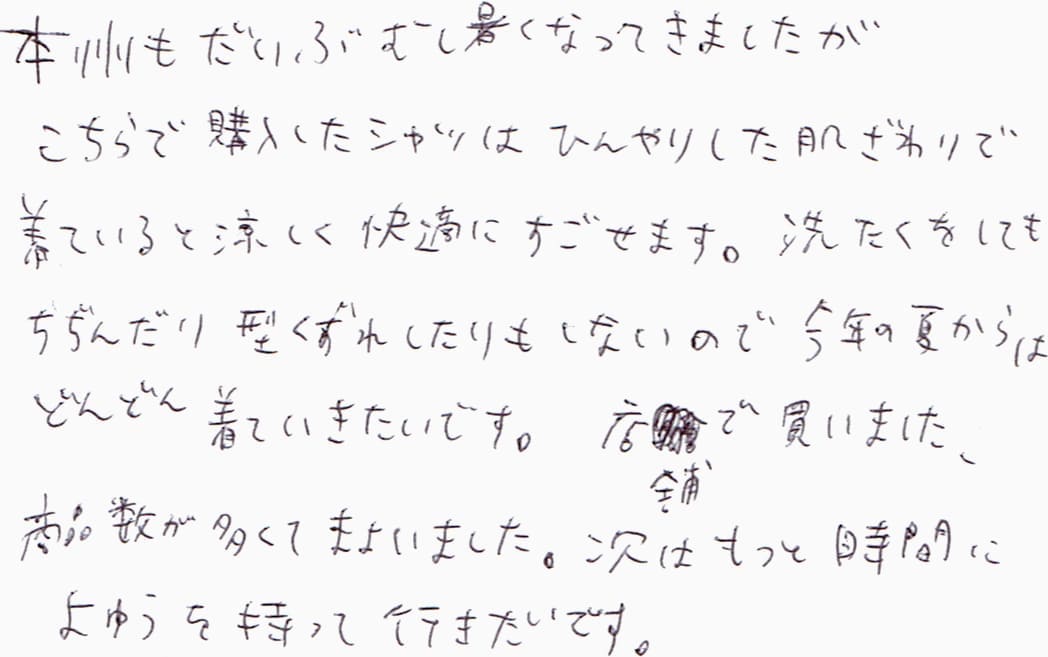 本州もだいぶむし暑くなってきましたが
こちらで購入したシャツはひんやりした肌ざわりで
着ていると涼しく快適にすごせます。洗たくをしても
ちぢんだり型くずれしたりもしないので今年の夏からは
どんどん着ていきたいです。店舗で買いました、
商品数が多くてまよいました。次はもっと時間に
よゆうを持って行きたいです。